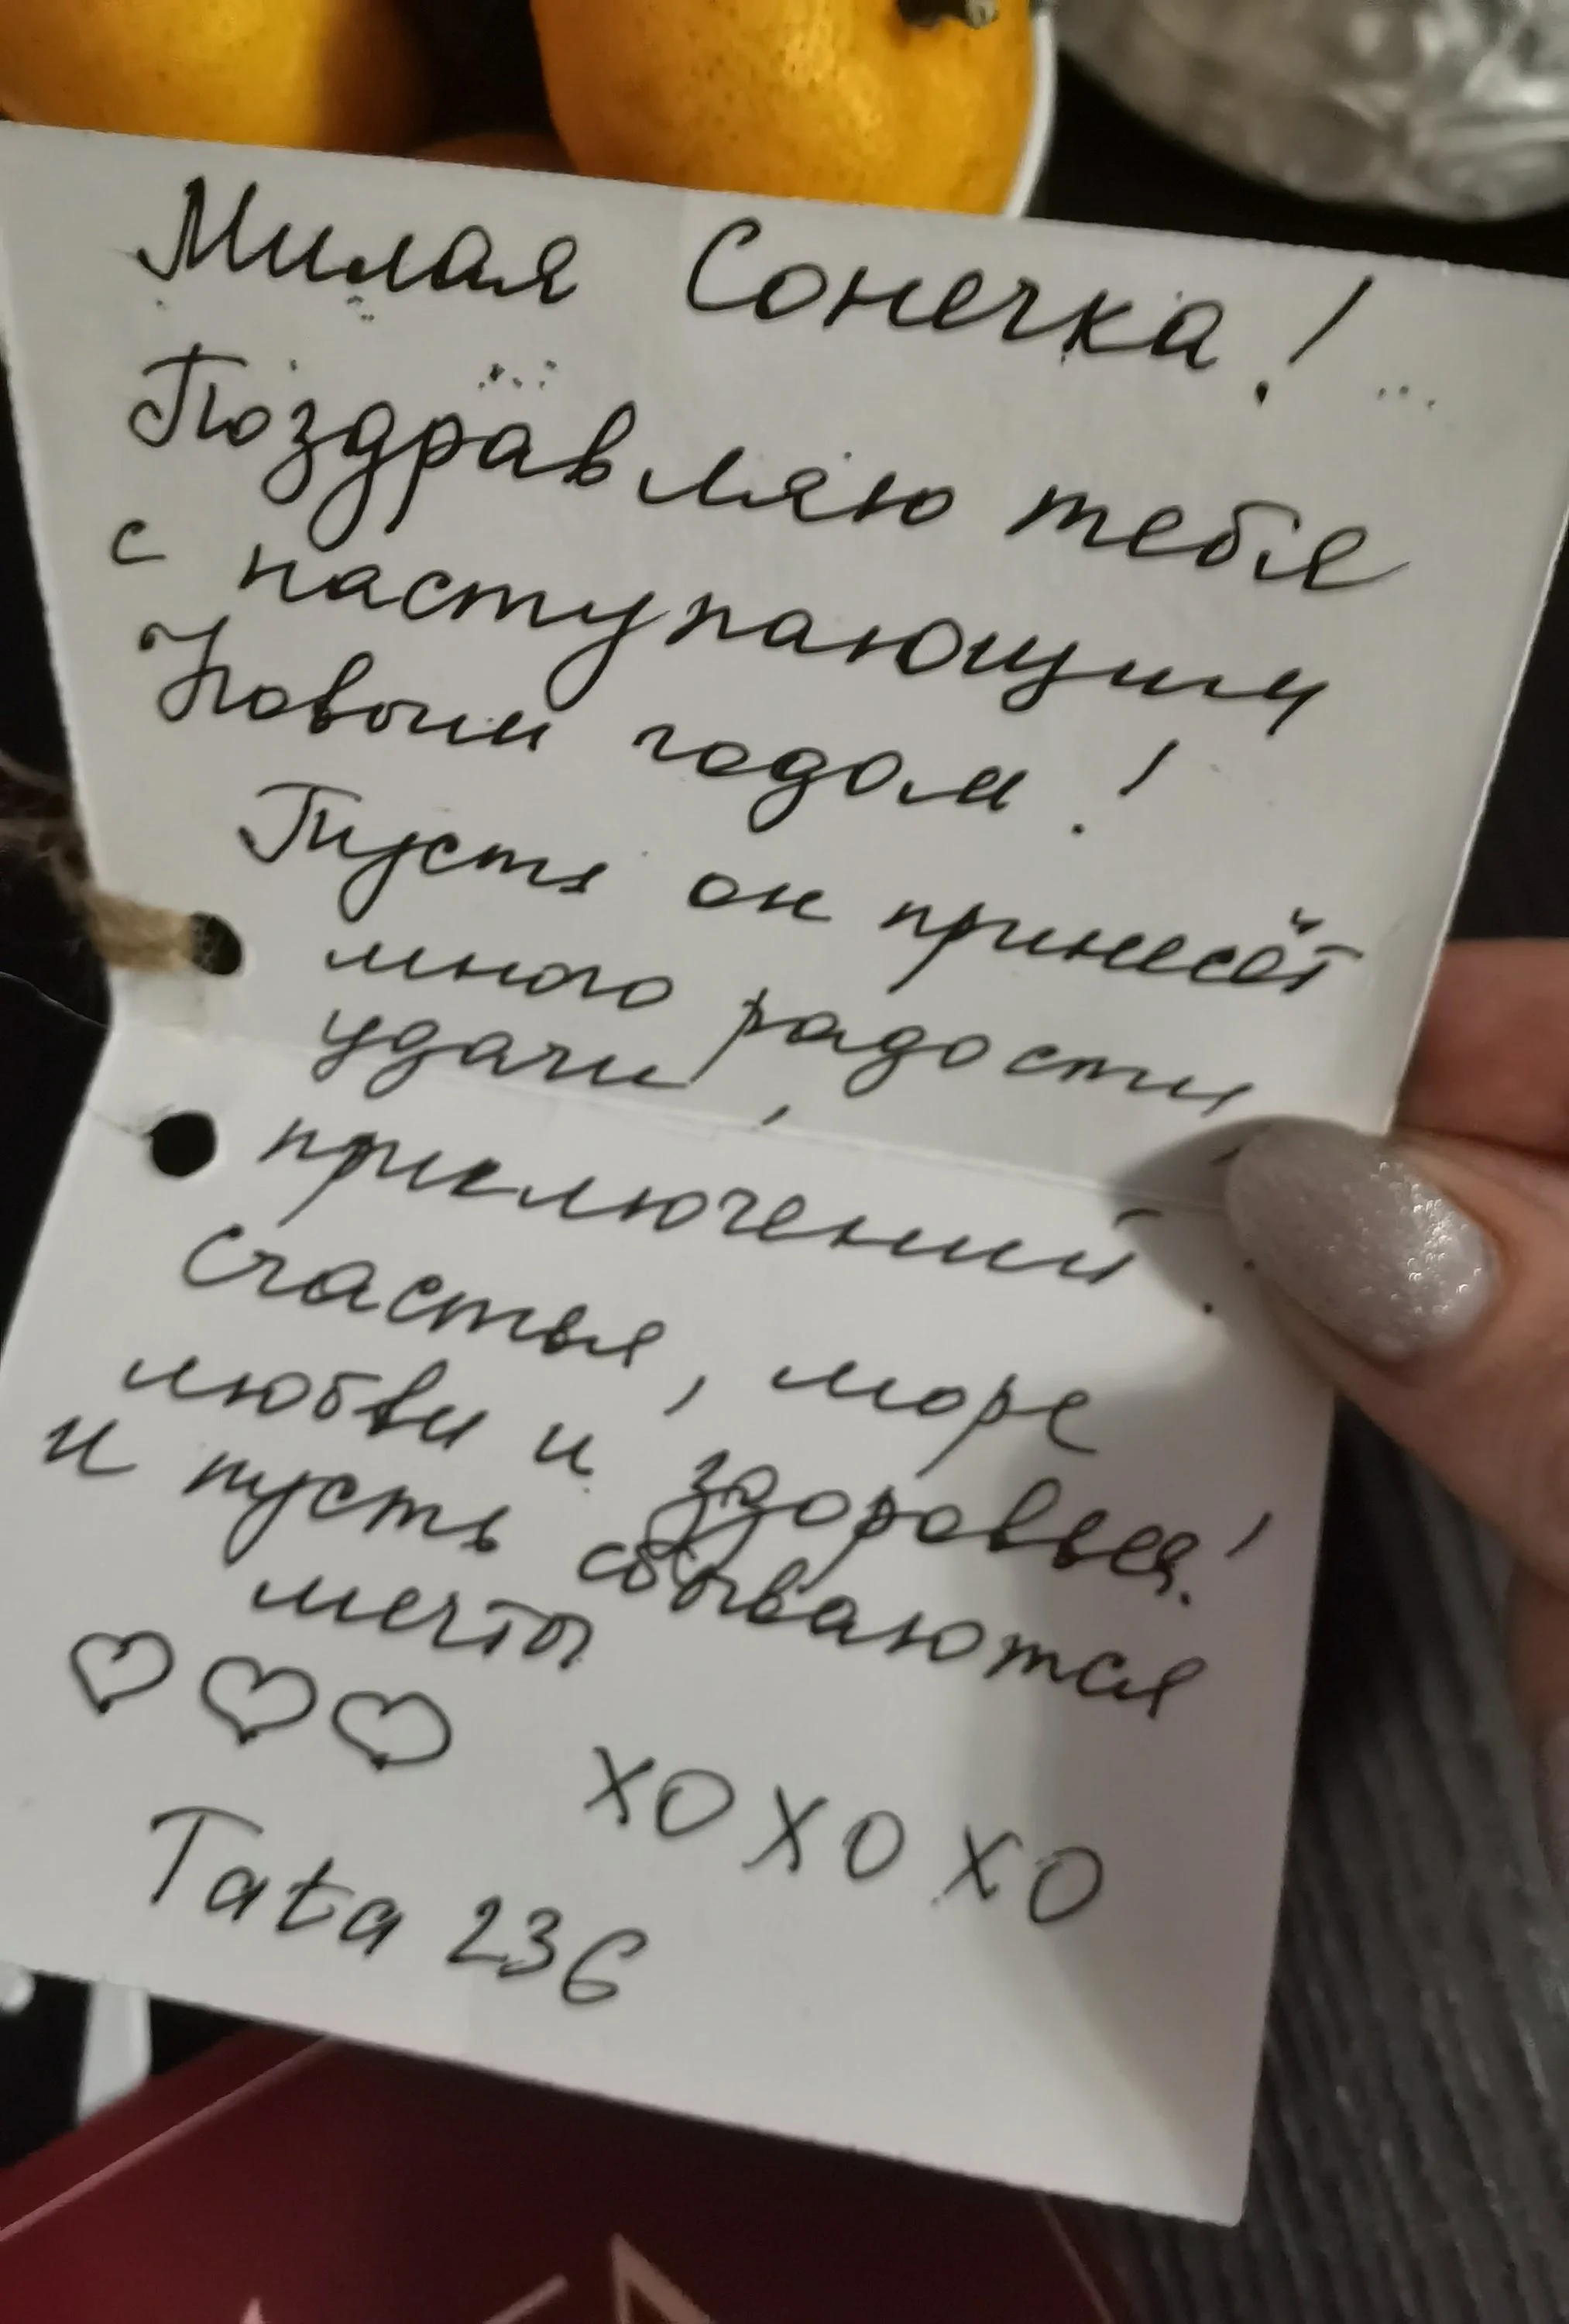 Милая Сонечка!
Поздравляю тебя
с наступающим
Новым годом!
Пусть он принесёт
много радости,
удачи,
приключений.
Счастья, море
любви и здоровья!
и пусть сбываются
мечты
♡♡♡ XOXOXO
Tata 236